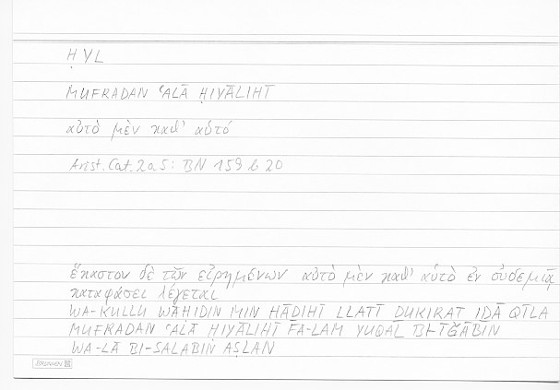 ḤYL
MUFRADAN ʿALĀ ḤIYĀLIHĪ
αὐτὸ μὲν καθ' αὑτό
Arist. Cat. 2a5: BN 159 b 20
ἕκαστον δὲ τῶν εἰρημένων αὐτὸ μὲν καθ' αὑτὸ ἐν οὐδεμιᾷ
καταφάσει λέγεται
WA-KULLU WĀḤIDIN MIN HĀḎIHĪ LLATĪ ḎUKIRAT IḎĀ QĪLA
MUFRADAN ʿALĀ ḤIYĀLIHĪ FA-LAM YUQAL BI-ĪǦĀBIN
WA-LĀ BI-SALABIN AṢLAN